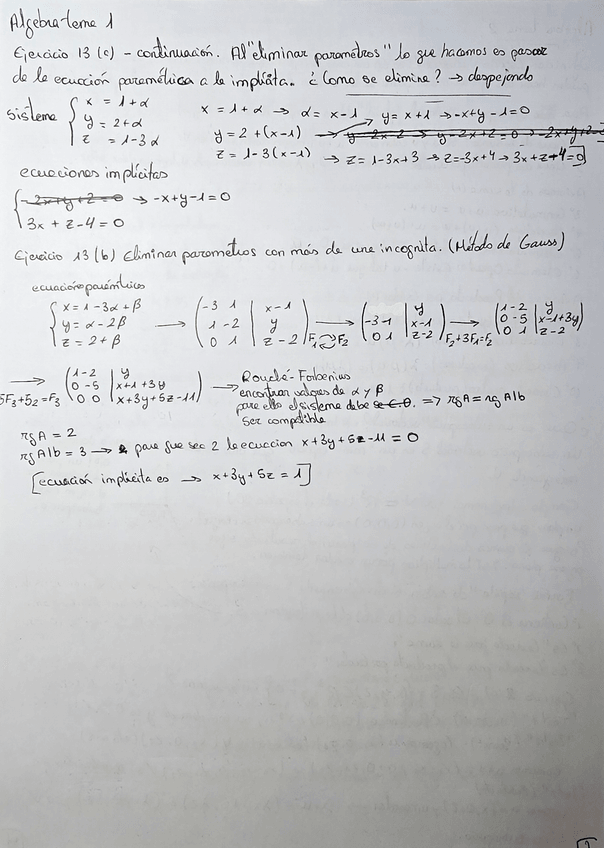 Algebra-tema 1
Ejercicio 13 (c) - continuación. Al "eliminar parametros" lo que hacemos es pasar
de la ecucción paramétrica a la implícita. ¿Cómo se elimina? → despejando
Sistema { x = 1+α   x = 1+α → α = x-1   y = x+1 → -x+y-1=0
y = 2+α   y = 2+(x-1)
z = 1-3α   z = 1-3(x-1) → z = 1-3x+3 → z=-3x+4 → 3x+z-4=0
ecuaciones implícitas
{ -2x+y+2=0 → -x+y-1=0
3x + z-4=0
Ejercicio 13 (b) Eliminar parametros con más de una incognita. (Método de Gauss)
ecuación paramétricas
{ x = 1-3α+β → ( -3 1 | x-1 ) → ( | y ) → ( 1 -2 | y )
y = α-2β   1 -2 | y   -3 1 | x-1   0 -5 | x-1+3y
z = 2+β   0 1 | z-2   F1 F2   0 1 | z-2   F2+3F1=F2   0 1 | z-2
→ ( 1 -2 | y ) → Rouché-Frobenius
5F3+F2=F3   0 -5 | x+1+3y   encontrar valores de α y β
0 0 | x+3y+5z-11   para ello el sistema debe ser compatible ⇒ rgA = rgA|b
rgA = 2
rgA|b = 3 → para que sea 2 la ecuccion x+3y+5z-11=0
[ecuación implícita es → x+3y+5z = 1]